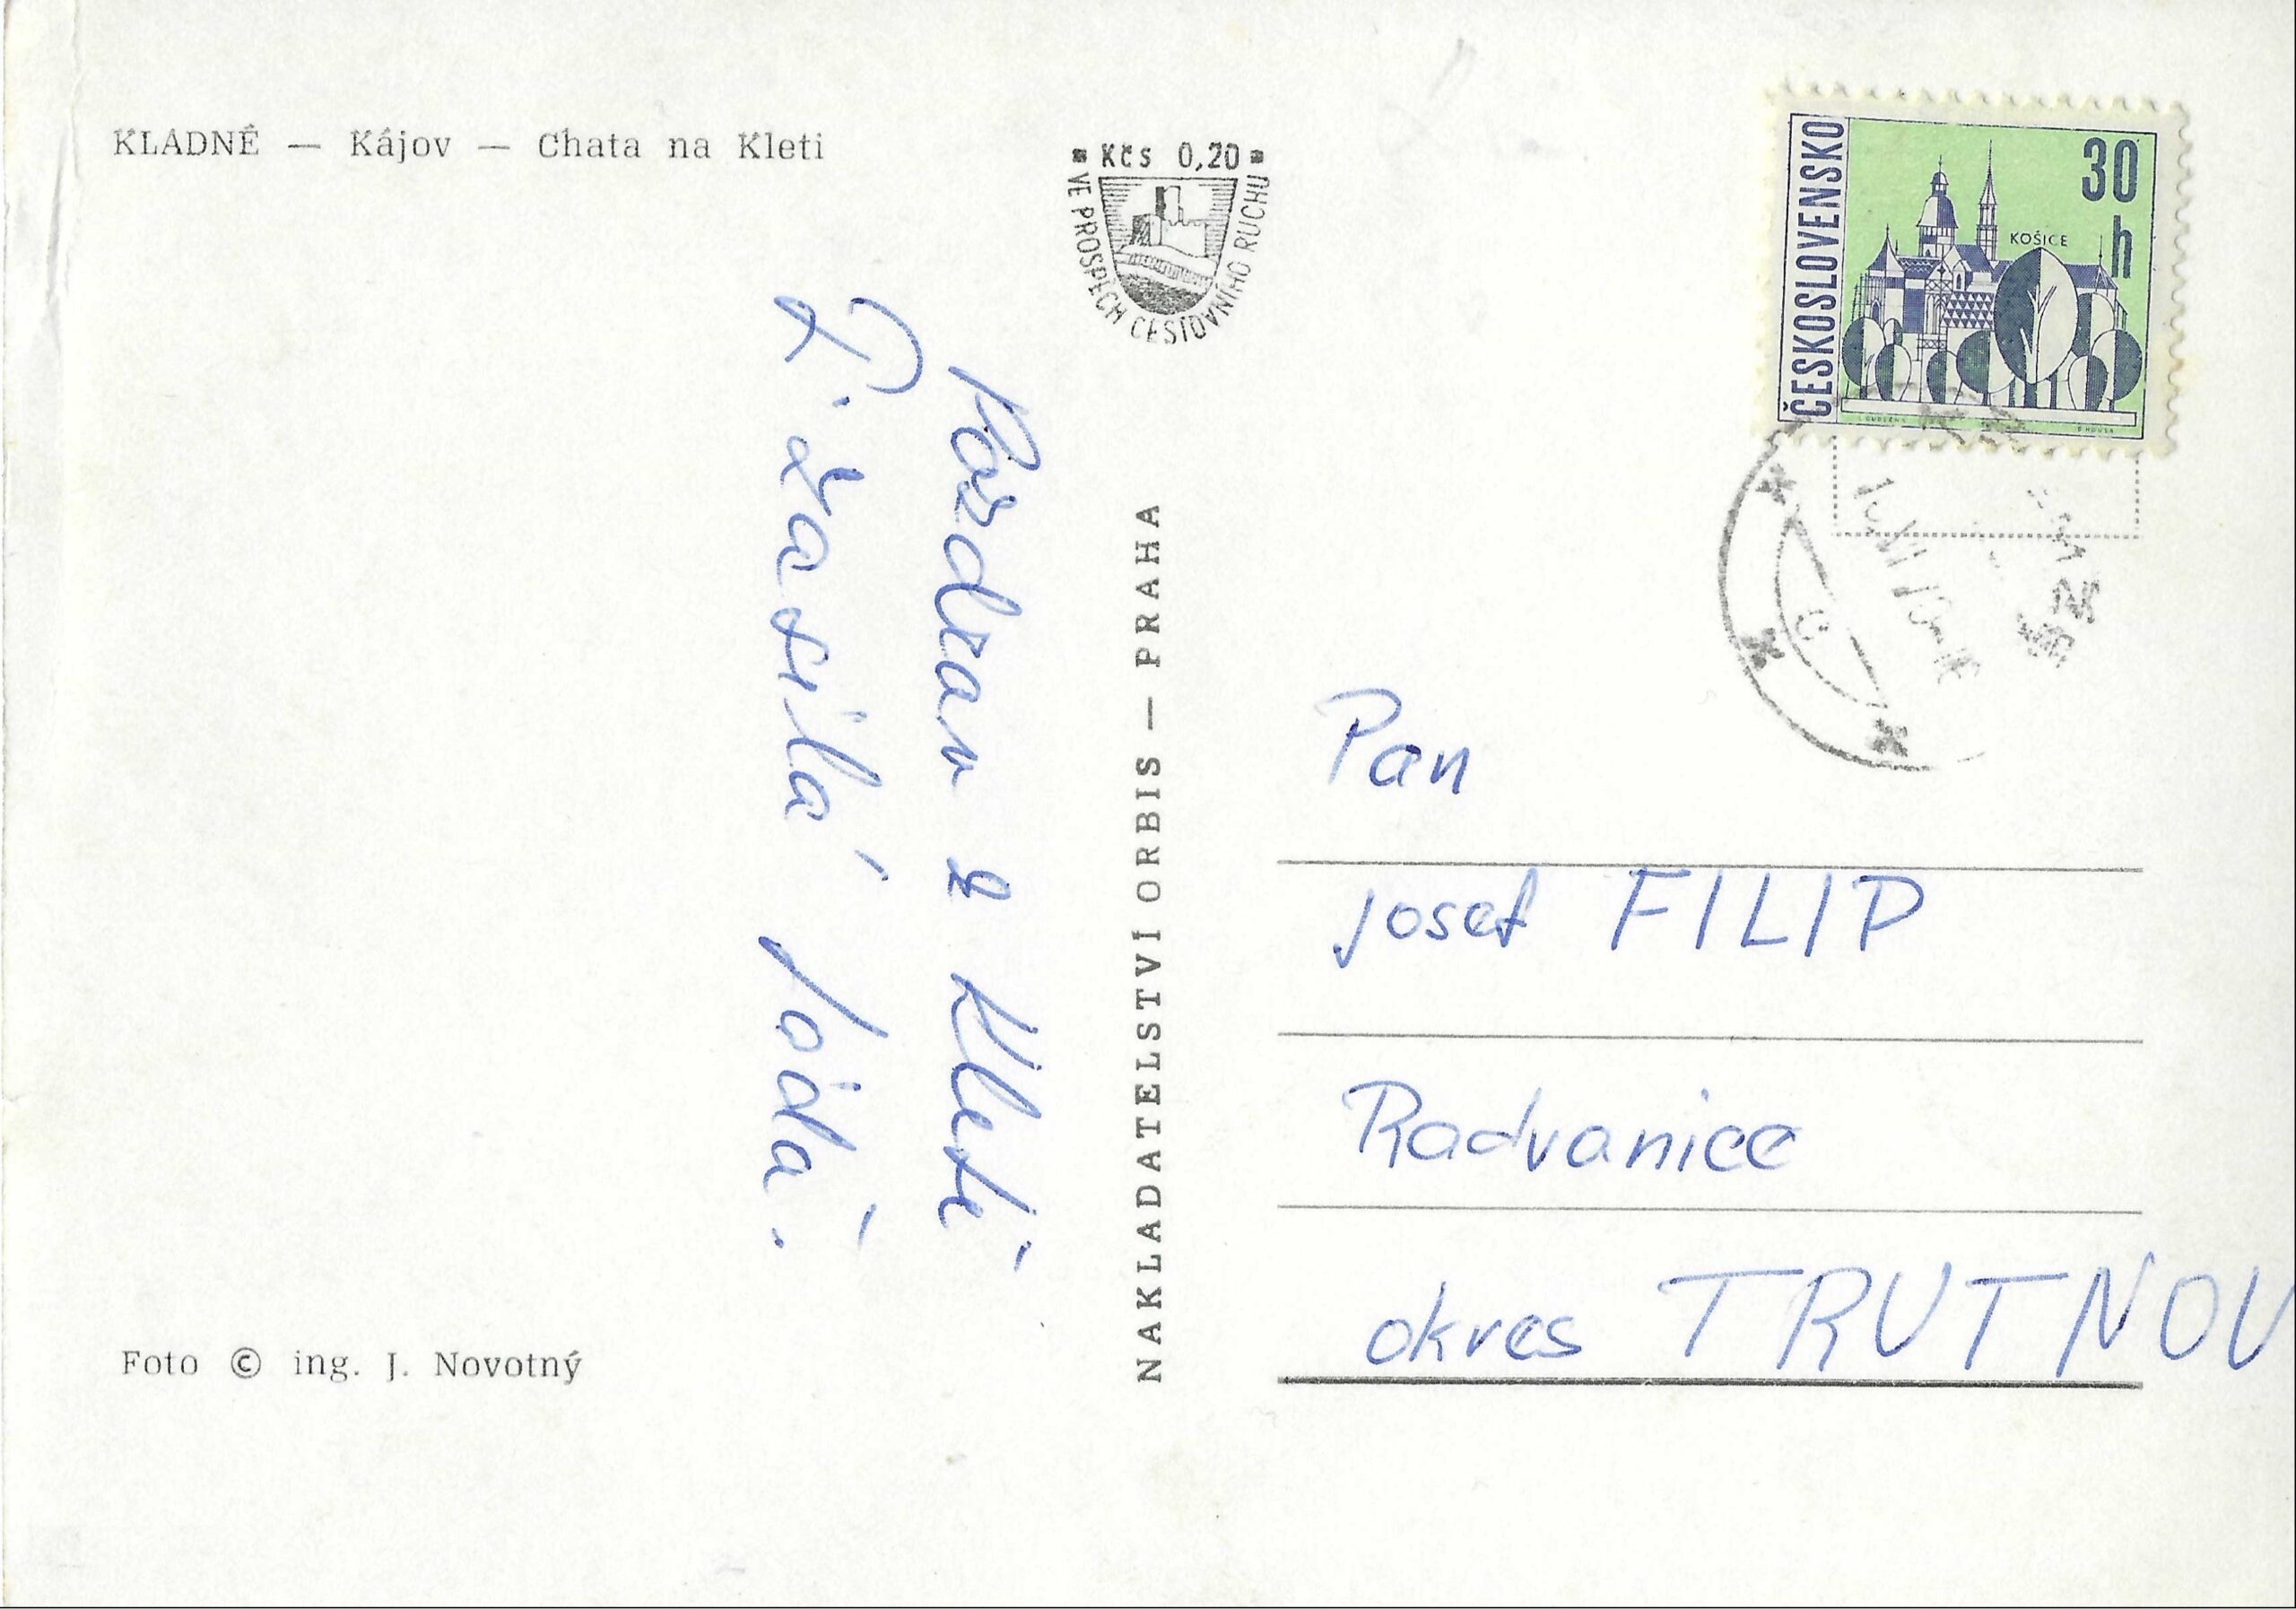 KLADNÉ — Kájov — Chata na Kleti
Kčs 0,20
VE PROSPĚCH CESTOVNÍHO RUCHU
ČESKOSLOVENSKO
30
h
KOŠICE
Pozdrav z Kleti
Ti zasílá Jóďa.
NAKLADATELSTVÍ ORBIS — PRAHA
Pan
Josef FILIP
Radvanice
okres TRUTNOV
Foto © ing. J. Novotný